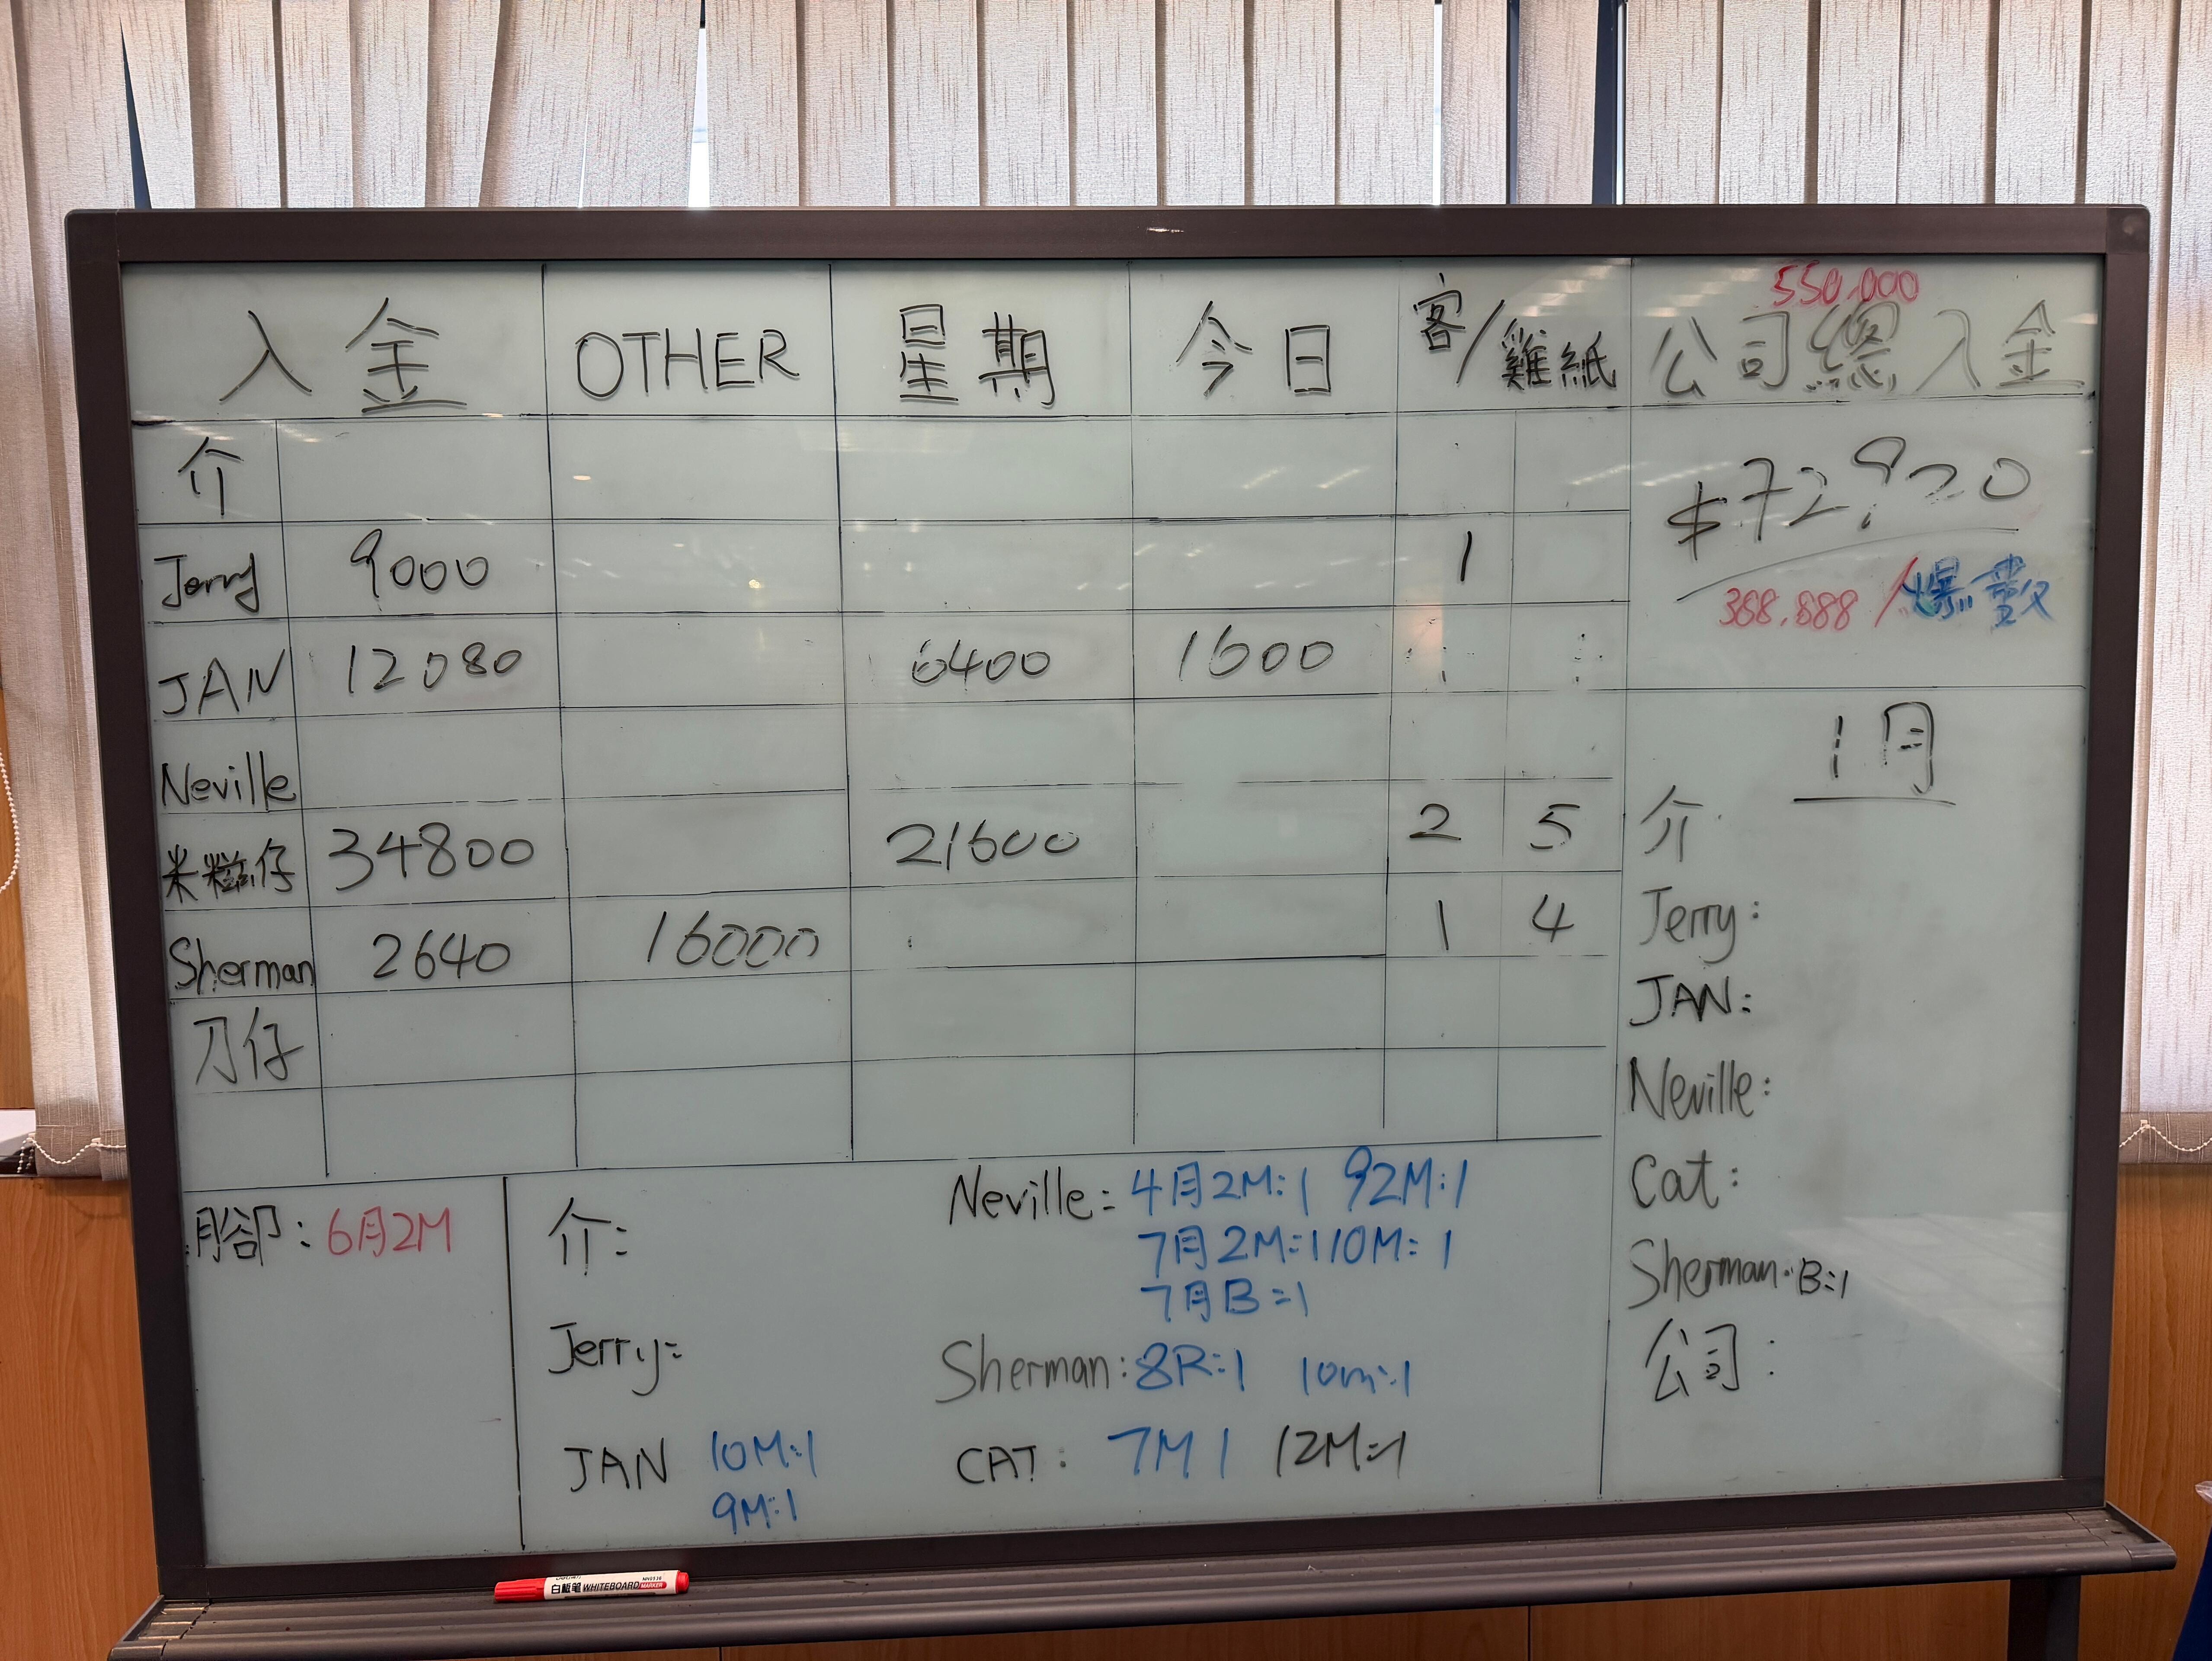 入金 OTHER 星期 今日 客/雞紙 公司總入金
550,000
介
$72,920
Jerry 9000 1
388,888/爆數
JAN 12080 6400 1600
Neville
米粒仔 34800 21600 2 5
Sherman 2640 16000 1 4
刀仔
1月
介
Jerry:
JAN:
Neville:
Cat:
Sherman: B:1
公司:
6月2M
介:
Jerry:
JAN 10M:1
9M:1
Neville: 4月2M:1 92M:1
7月2M:1 10M:1
7月B:1
Sherman: 8R:1 10m:1
CAT: 7M 1 12M:1
白板笔 WHITEBOARD MARKER